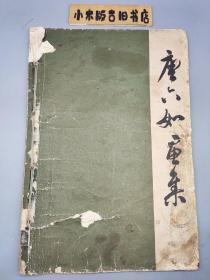 小木陈古旧书店
唐六如画集